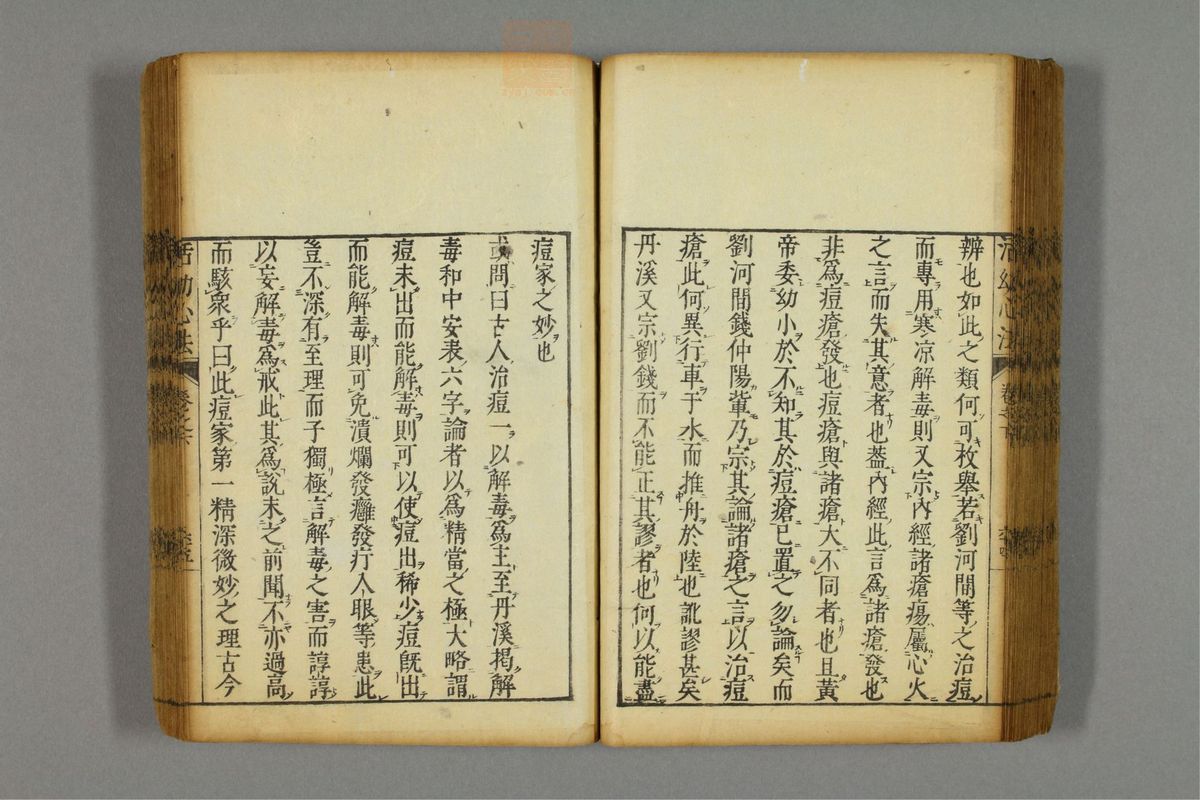 辨也如此之類何可枚舉若劉河間等之治痘
而專用寒凉解毒則又宗內經諸瘡瘍屬心火
之言而失其意者也葢內經此言爲諸瘡發也
非爲痘瘡發也痘瘡與諸瘡大不同者也且黃
帝委幼小於不知其於痘瘡已置之勿論矣而
劉河間錢仲陽軰乃宗其論諸瘡之言以治痘
瘡此何異行車于水而推舟於陸也訛謬甚矣
丹溪又宗劉錢而不能正其謬者也何以能盡
痘家之妙也
或問曰古人治痘一以解毒爲主至丹溪揭解
毒和中安表六字論者以爲精當之極大略謂
痘未出而能解毒則可以使痘出稀少痘既出
而能解毒則可免潰爛發癰發疔入眼等患此
豈不深有至理而子獨極言解毒之害而諄諄
以妄解毒爲戒此其爲說未之前聞不亦過高
而駭衆乎曰此痘家第一精深微妙之理古今
活幼心法
卷之六